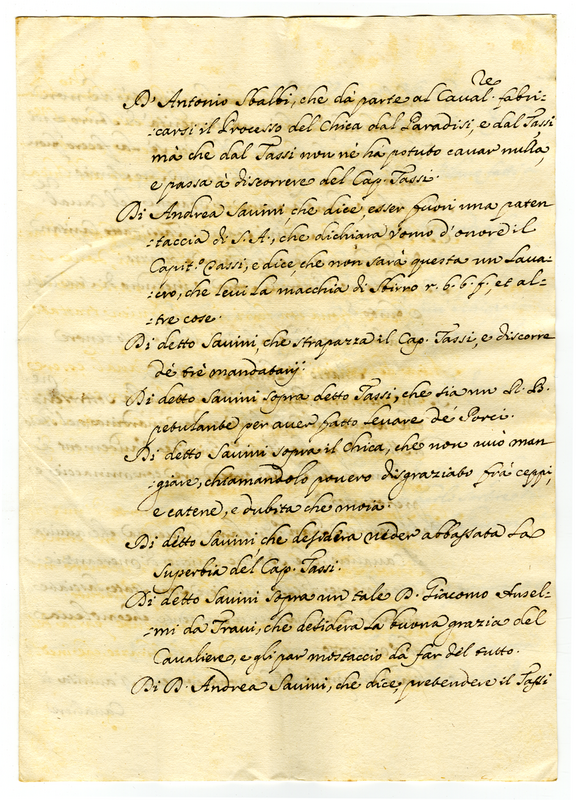 D. Antonio Sbalbi, che dà parte al Caval.re fabri-
:carsi il Processo del Chica dal Paradisi, e dal Tassi
mà che dal Tassi non né ha potuto cavar nulla,
e passa à discorrere del Cap. Tassi.
Di Andrea Savini che dice, esser fuori una paten-
:taccia di S. A., che dichiara uomo d'onore il
Capit.o Tassi, e dice, che non sarà questa un Lava-
:cro, che levi la macchia di Sbirro r. b. b. f, et al-
:tre cose.
Di detto Savini, che strapazza il Cap. Tassi, e discorre
de' trè mandatarij.
Di detto Savini sopra detto Tassi, che sia un B.
petulante per aver fatto levare de' Porci.
Di detto Savini sopra il Chica, che non vuò man
giare, chiamandolo povero disgraziato frà ceppi,
e catene, e dubita che muoia.
Di detto Savini che desidera veder abbassata La
Superbia del Cap. Tassi.
Di detto Savini sopra un tale D. Giacomo Ansel-
:mi da Travi, che desidera La buona grazia del
Cavaliere, e gli par mostaccio da far del tutto.
Di D. Andrea Savini, che dice, pretendere il Tassi